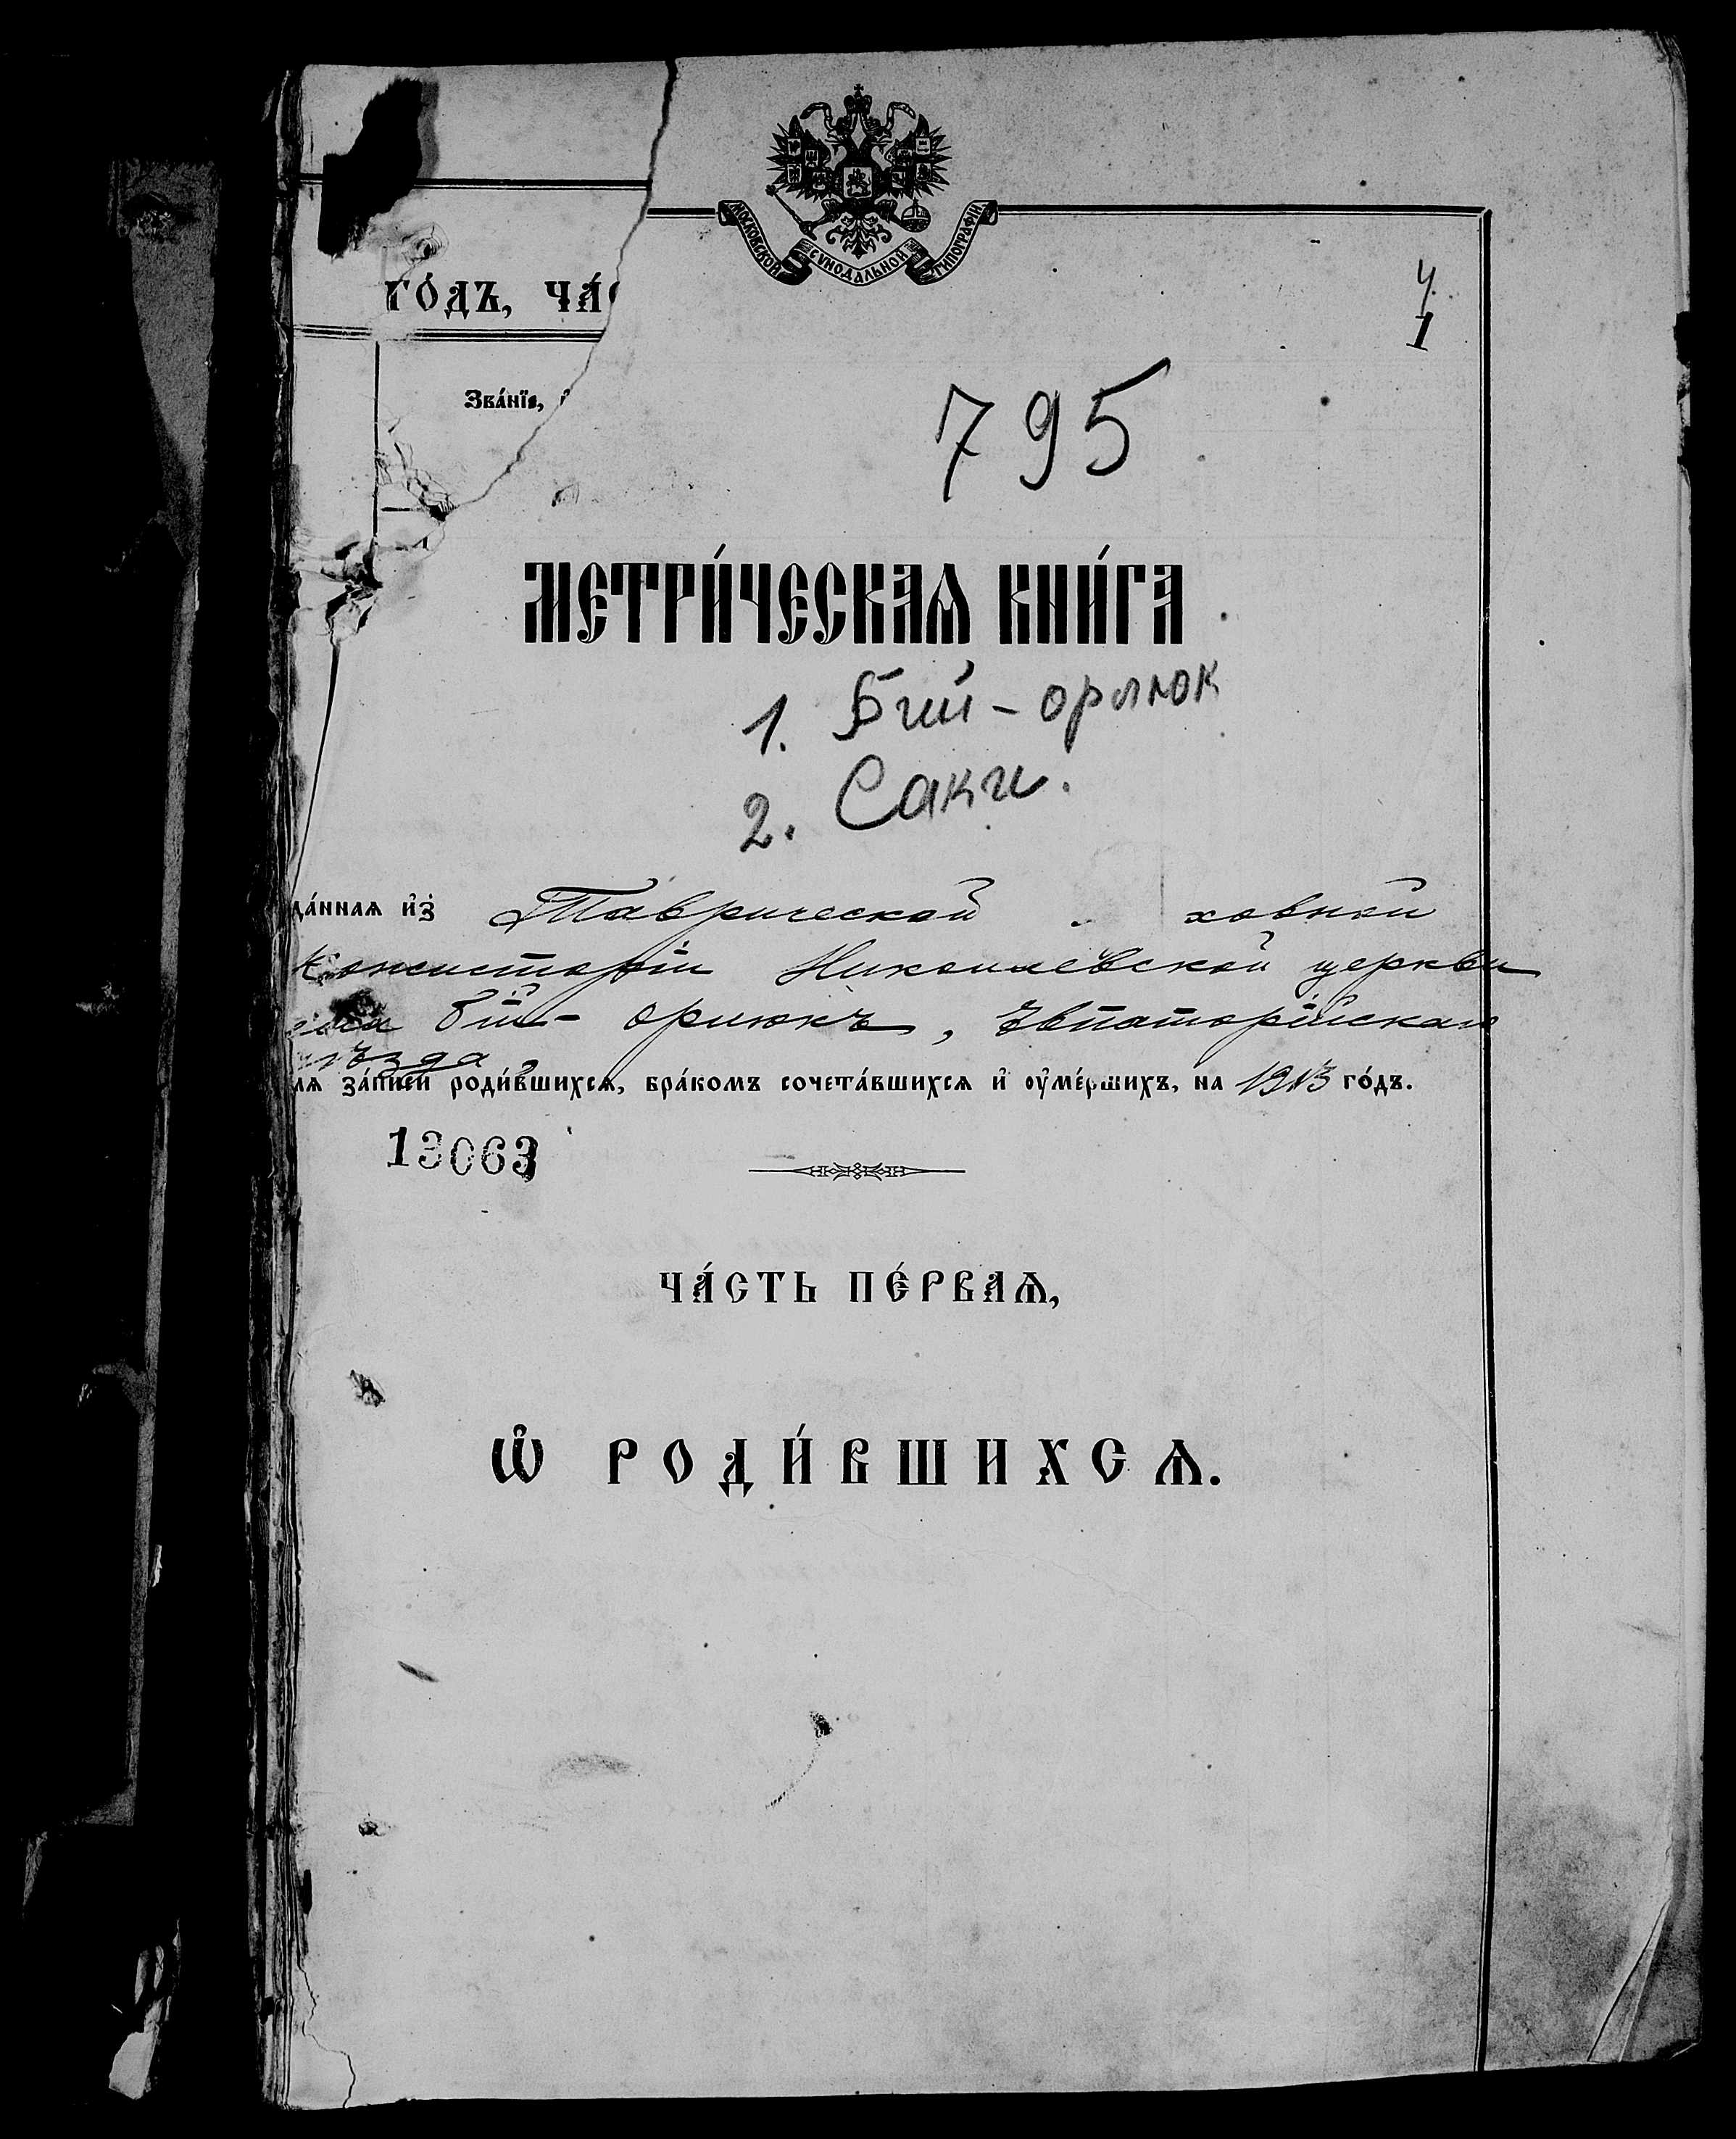 МОСКОВСКОЙ СѴНОДАЛЬНОЙ ТИПОГРАФІИ
ГО́ДЪ, ЧА́С
Зва́нїе,
4
1
795
МЕТРИ́ЧЕСКАѦ КНИ́ГА
1. Бий-орлюк
2. Саки.
да́ннаѧ и҆з̾ Таврической ховной
Консисторіи Николаевской церкви
Бій-Орлюкъ, Евпаторійскаго
уѣзда
лѧ за́писи роди́вшихсѧ, бра́комъ сочета́вшихсѧ и҆ оу҆ме́ршихъ, на 1913 го́дъ.
13063
ЧА́СТЬ ПЕ́РВАѦ,
Ѡ҆ РОДИ́ВШИХСѦ.